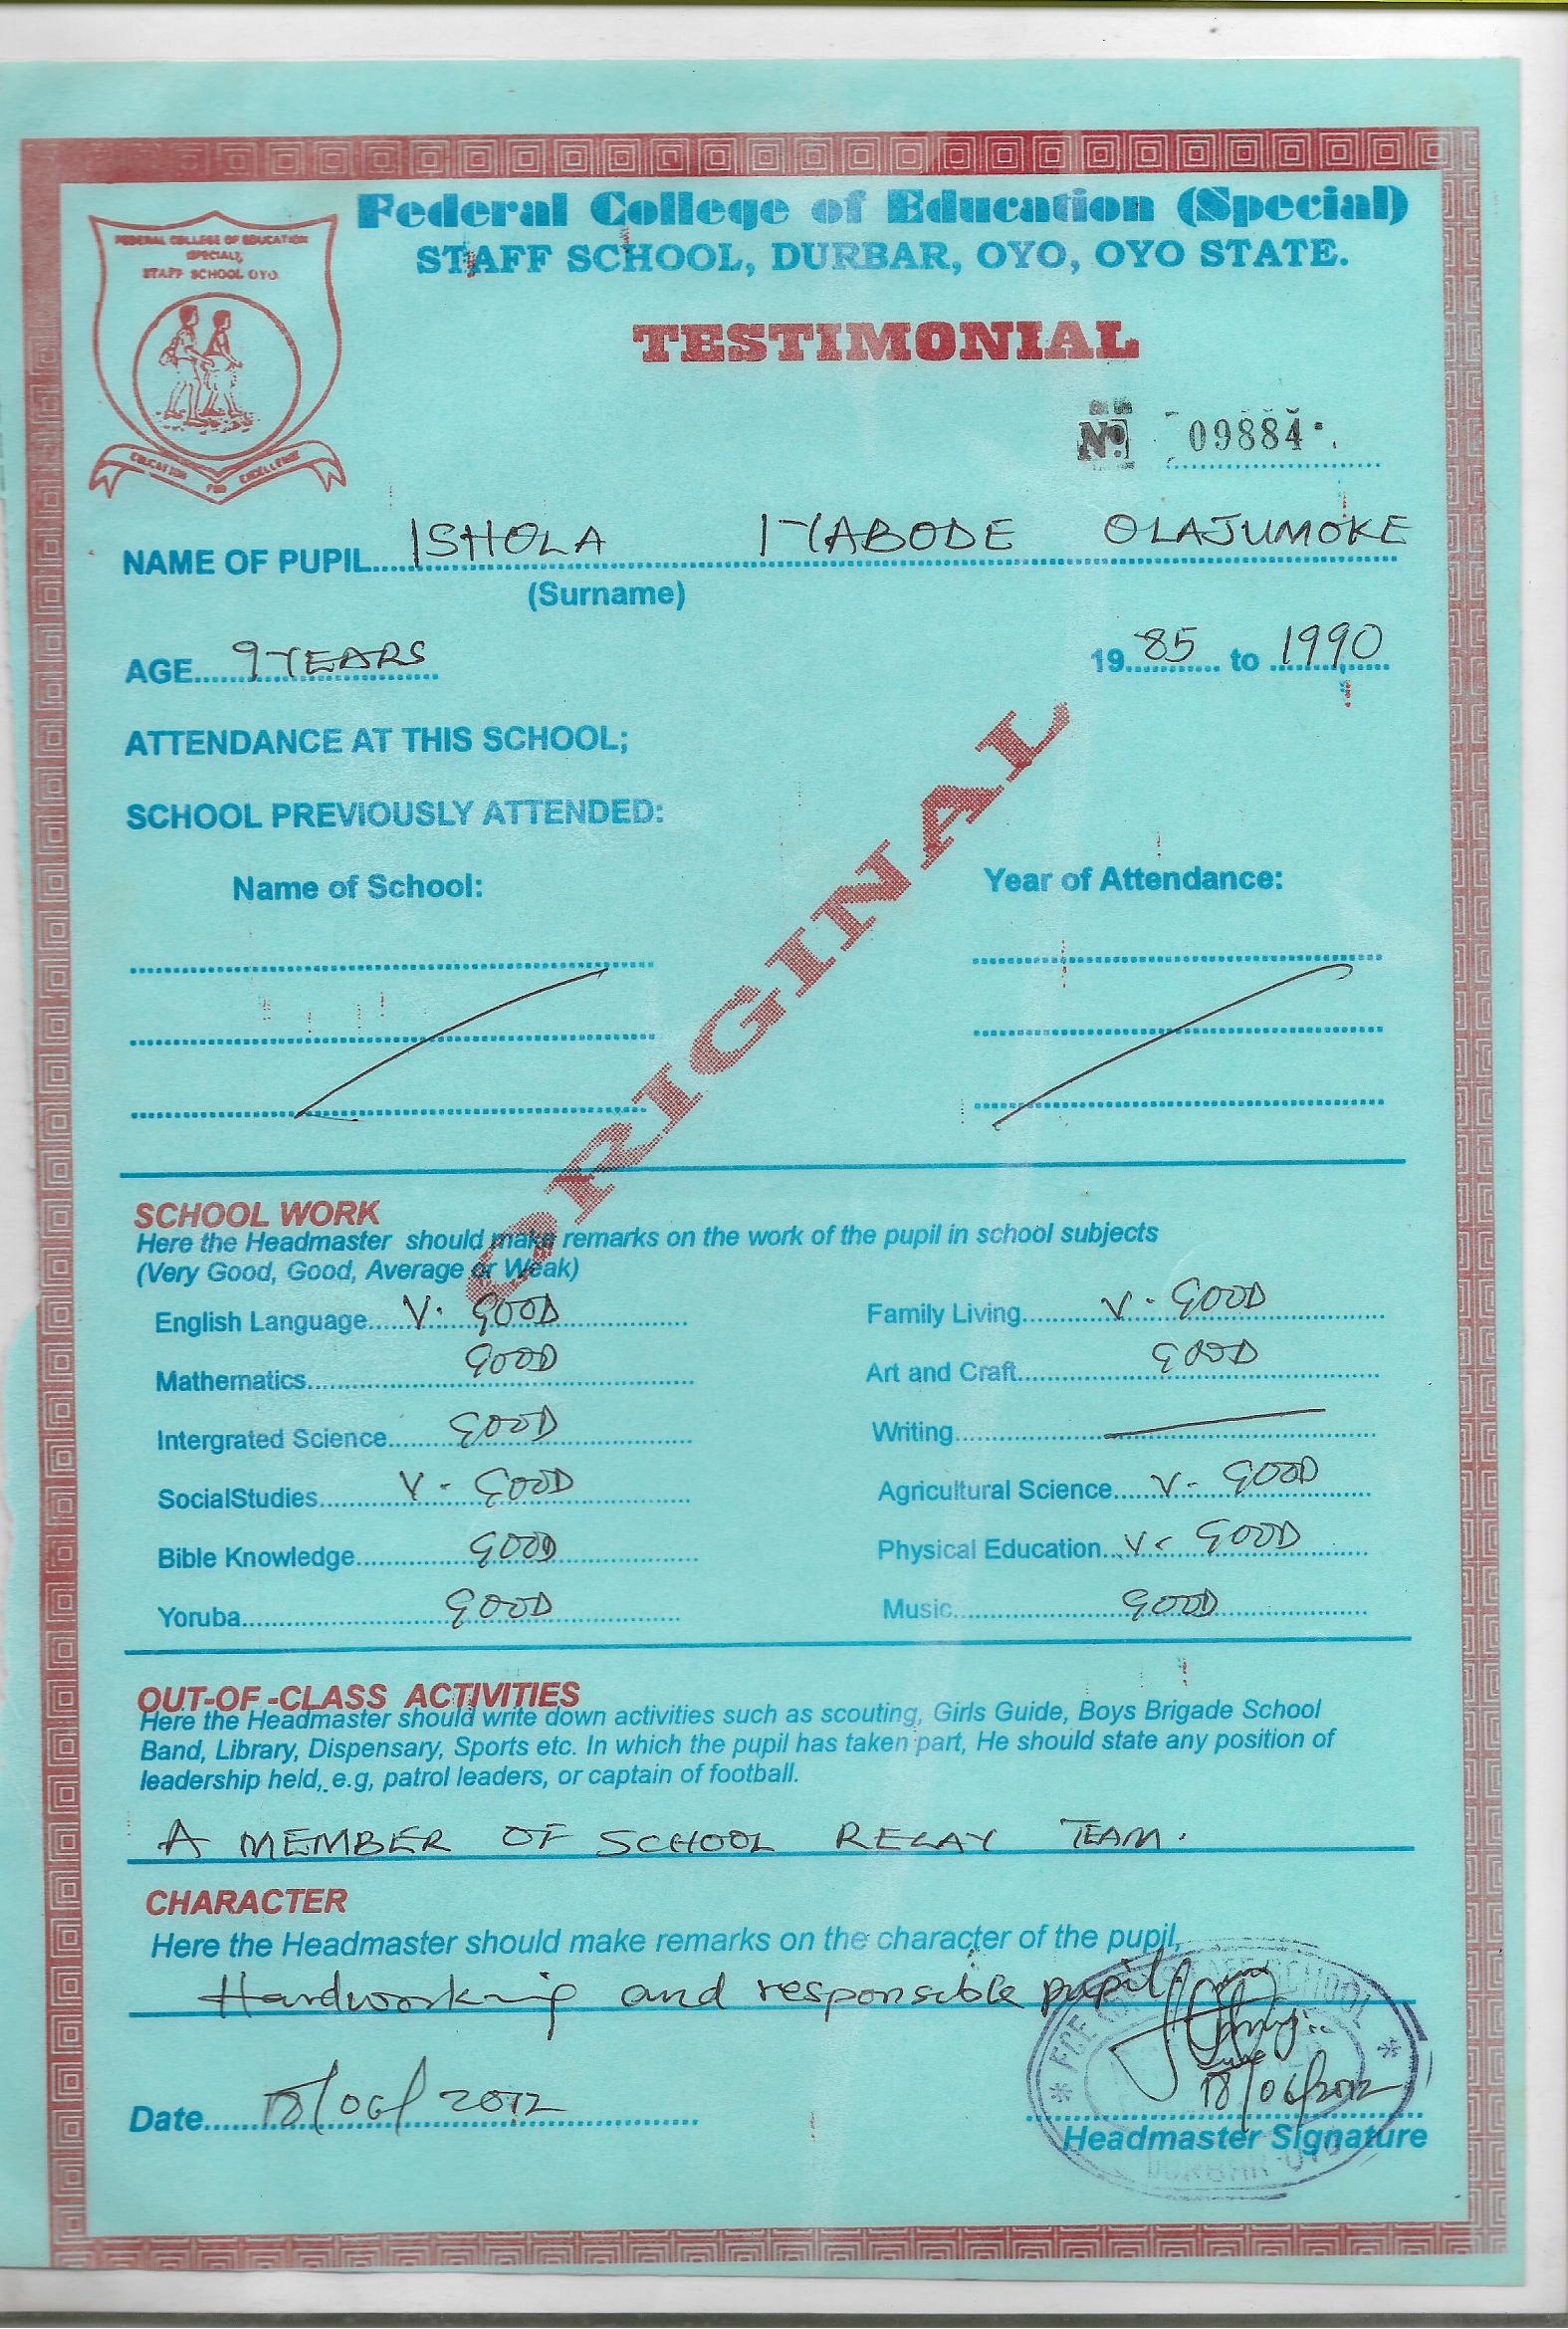 FEDERAL COLLEGE OF EDUCATION
(SPECIAL),
STAFF SCHOOL OYO
EDUCATION FOR EXCELLENCE
Federal College of Education (Special)
STAFF SCHOOL, DURBAR, OYO, OYO STATE.
TESTIMONIAL
No 09884
NAME OF PUPIL ISHOLA IYABODE OLAJUMOKE
(Surname)
AGE 9 YEARS 1985 to 1990
ATTENDANCE AT THIS SCHOOL;
SCHOOL PREVIOUSLY ATTENDED:
Name of School: Year of Attendance:
ORIGINAL
SCHOOL WORK
Here the Headmaster should make remarks on the work of the pupil in school subjects
(Very Good, Good, Average or Weak)
English Language V. GOOD Family Living V. GOOD
Mathematics GOOD Art and Craft GOOD
Intergrated Science GOOD Writing
SocialStudies V. GOOD Agricultural Science V. GOOD
Bible Knowledge GOOD Physical Education V. GOOD
Yoruba GOOD Music GOOD
OUT-OF-CLASS ACTIVITIES
Here the Headmaster should write down activities such as scouting, Girls Guide, Boys Brigade School
Band, Library, Dispensary, Sports etc. In which the pupil has taken part, He should state any position of
leadership held, e.g, patrol leaders, or captain of football.
A MEMBER OF SCHOOL RELAY TEAM.
CHARACTER
Here the Headmaster should make remarks on the character of the pupil,
Hardworking and responsible pupil
18/06/2012
Date 18/06/2012
Headmaster Signature